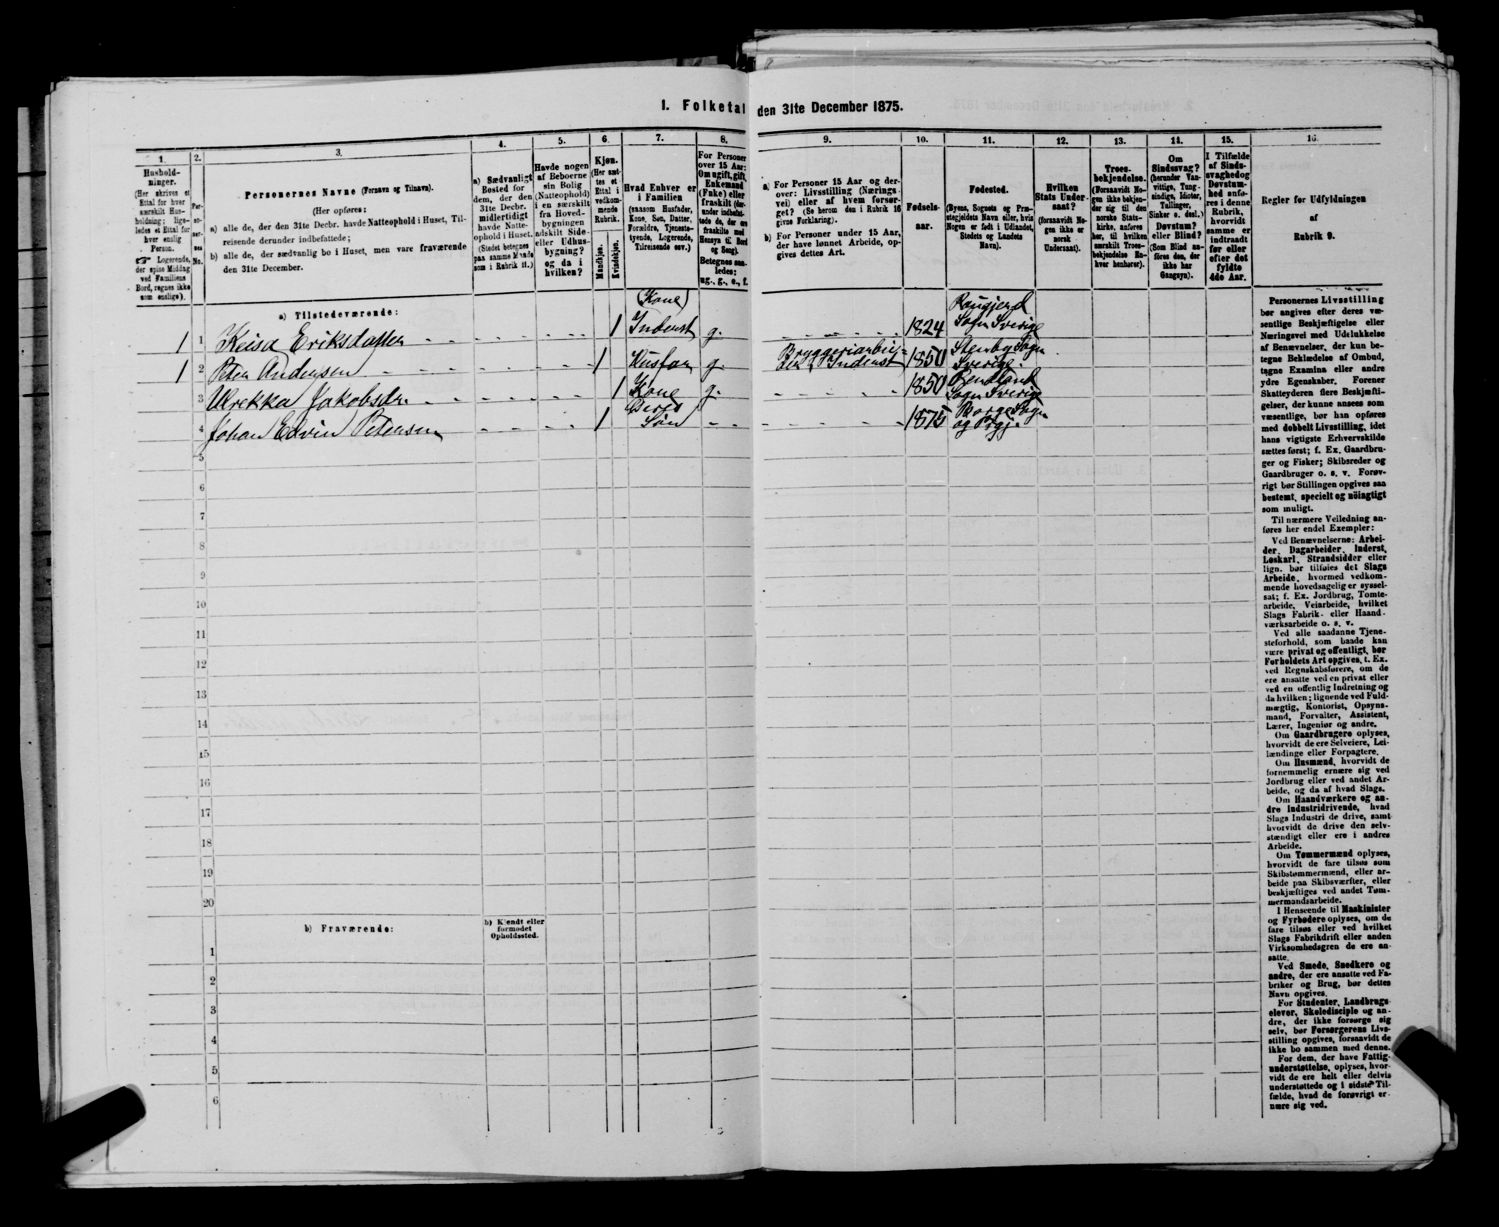 I. Folketal den 31te December 1875.
1. 2. 3. 4. 5. 6. 7. 8. 9. 10. 11. 12. 13. 14. 15. 16.
Hushold-
ninger.
(Her skrives et
Ettal for hver
særskilt Hus-
holdning; lige-
ledes et Ettal for
hver enslig
Person.
☞ Logerende,
der spise Middag
ved Familiens
Bord, regnes ikke
som enslige).
Per-
so-
ner-
nes
No.
Personernes Navne (Fornavn og Tilnavn).
(Her opføres:
a) alle de, der den 31te Decbr. havde Natteophold i Huset, Til-
reisende derunder indbefattede;
b) alle de, der sædvanlig bo i Huset, men vare fraværende
den 31te December.
a) Sædvanligt
Bosted for
dem, der den
31te Decbr.
midlertidigt
havde Natte-
ophold i Huset.
(Stedet betegnes
paa samme Maade
som i Rubrik 11.)
Havde nogen
af Beboerne
sin Bolig
(Natteophold)
i en særskilt
fra Hoved-
bygningen
adskilt Side-
eller Udhus-
bygning?
og da i
hvilken?
Kjøn.
(Her sæt-
tes et
Ettal i
vedkom-
mende
Rubrik.
Mandkjøn.
Kvindekjøn.
Hvad Enhver er
i Familien
(saasom Husfader,
Kone, Søn, Datter,
Forældre, Tjeneste-
tyende, Logerende,
Tilreisende osv.)
For Personer
over 15 Aar:
Om ugift, gift,
Enkemand
(Enke) eller
fraskilt
Betegnes saa-
ledes:
ug., g., e., f.
a) For Personer 15 Aar og der-
over: Livsstilling (Nærings-
vei) eller af hvem forsør-
get? (Se herom den i Rubrik 16
givne Forklaring).
b) For Personer under 15 Aar,
der have lønnet Arbeide, op-
gives dettes Art.
Fødsels-
aar.
Fødested.
(Byens, Sognets og Præ-
stegjeldets Navn eller, hvis
Nogen er født i Udlandet,
Stedets og Landets
Navn).
Hvilken
Stats Under-
saat?
(forsaavidt No-
gen ikke er
norsk
Undersaat).
Troes-
bekjendelse.
(Forsaavidt No-
gen ikke bekjen-
der sig til den
norske Stats-
kirke, anføres
her, til hvilken
særskilt Troes-
bekjendelse En-
hver henhører).
Om
Sindssvag?
(herunder Van-
vittige, Tung-
sindige, Idioter,
Tullinger,
Sinker o. desl.)
Døvstum?
eller Blind?
(Som Blind an-
føres den, der
ikke har
Gangsyn).
I Tilfælde
af Sinds-
svaghed og
Døvstum-
hed anfø-
res i denne
Rubrik,
hvorvidt
samme er
indtraadt
før eller
efter det
fyldte
4de Aar.
Regler for Udfyldningen
af
Rubrik 9.
a) Tilstedeværende:
1 1 Keisa Eriksdatter 1 (Kone) Inderst g. 1824 Sogn Sverige
1 2 Peter Andersen 1 Husfar g. Bryggeriarbei-
der & Inderst 1850 Stenby Sogn Sverige
3 Ulrekka Jakobsdr. 1 Kone g. 1850 Sogn Sverige
4 Johan Edvin Petersen 1 Søn 1875 Borge Sogn
og Prgj.
5
6
7
8
9
10
11
12
13
14
15
16
17
18
19
20
b) Fraværende:
b) Kjendt eller
formodet
Opholdssted.
1
2
3
4
5
6
Personernes Livsstilling
bør angives efter deres væ-
sentlige Beskjæftigelse eller
Næringsvei med Udelukkelse
af Benævnelser, der kun be-
tegne Beklædelse af Ombud,
tagne Examina eller andre
ydre Egenskaber. Forener
Skatteyderen flere Beskjæfti-
gelser, der kunne ansees som
væsentlige, bør han opføres
med dobbelt Livsstilling, idet
hans vigtigste Erhvervskilde
sættes først; f. Ex. Gaardbru-
ger og Fisker; Skibsreder og
Gaardbruger o. s. v. Forøv-
rigt bør Stillingen opgives saa
bestemt, specielt og nöiagtigt
som muligt.
Til nærmere Veiledning an-
føres her endel Exempler:
Ved Benævnelserne: Arbei-
der, Dagarbeider, Inderst,
Løskarl, Strandsidder eller
lign. bør tilføies det Slags
Arbeide, hvormed vedkom-
mende hovedsagelig er syssel-
sat; f. Ex. Jordbrug, Tomte-
arbeide, Veiarbeide, hvilket
Slags Fabrik- eller Haand-
værksarbeide o. s. v.
Ved alle saadanne Tjene-
steforhold, som baade kan
være privat og offentligt, bør
Forholdets Art opgives, t. Ex.
ved Regnskabsførere, om de
ere ansatte ved en privat eller
ved en offentlig Indretning og
da hvilken; lignende ved Fuld-
mægtig, Kontorist, Opsyns-
mand, Forvalter, Assistent,
Lærer, Ingeniør og andre.
Om Gaardbrugere oplyses,
hvorvidt de ere Selveiere, Lei-
lændinge eller Forpagtere.
Om Husmænd, hvorvidt de
fornemmelig ernære sig ved
Jordbrug eller ved andet Ar-
beide, og da af hvad Slags.
Om Haandværkere og an-
dre Industridrivende, hvad
Slags Industri de drive, samt
hvorvidt de drive den selv-
stændigt eller ere i andres
Arbeide.
Om Tømmermænd oplyses,
hvorvidt de fare tilsøs som
Skibstømmermænd, eller ar-
beide paa Skibsværfter, eller
beskjæftiges ved andet Tøm-
mermandsarbeide.
I Henseende til Maskinister
og Fyrbødere oplyses, om de
fare tilsøs eller ved hvilket
Slags Fabrikdrift eller anden
Virksomhedsgren de ere an-
satte.
Ved Smede, Snedkere og
andre, der ere ansatte ved Fa-
briker og Brug, bør dettes
Navn opgives.
For Studenter, Landbrugs-
elever, Skoledisciple og an-
dre, der ikke forsørge sig
selv, bør Forsørgerens Livs-
stilling opgives, forsaavidt de
ikke bo sammen med denne.
For dem, der have Fattig-
understøttelse, oplyses, hvor-
vidt de ere helt eller delvis
understøttede og i sidste Til-
fælde, hvad de forøvrigt er-
nære sig ved.